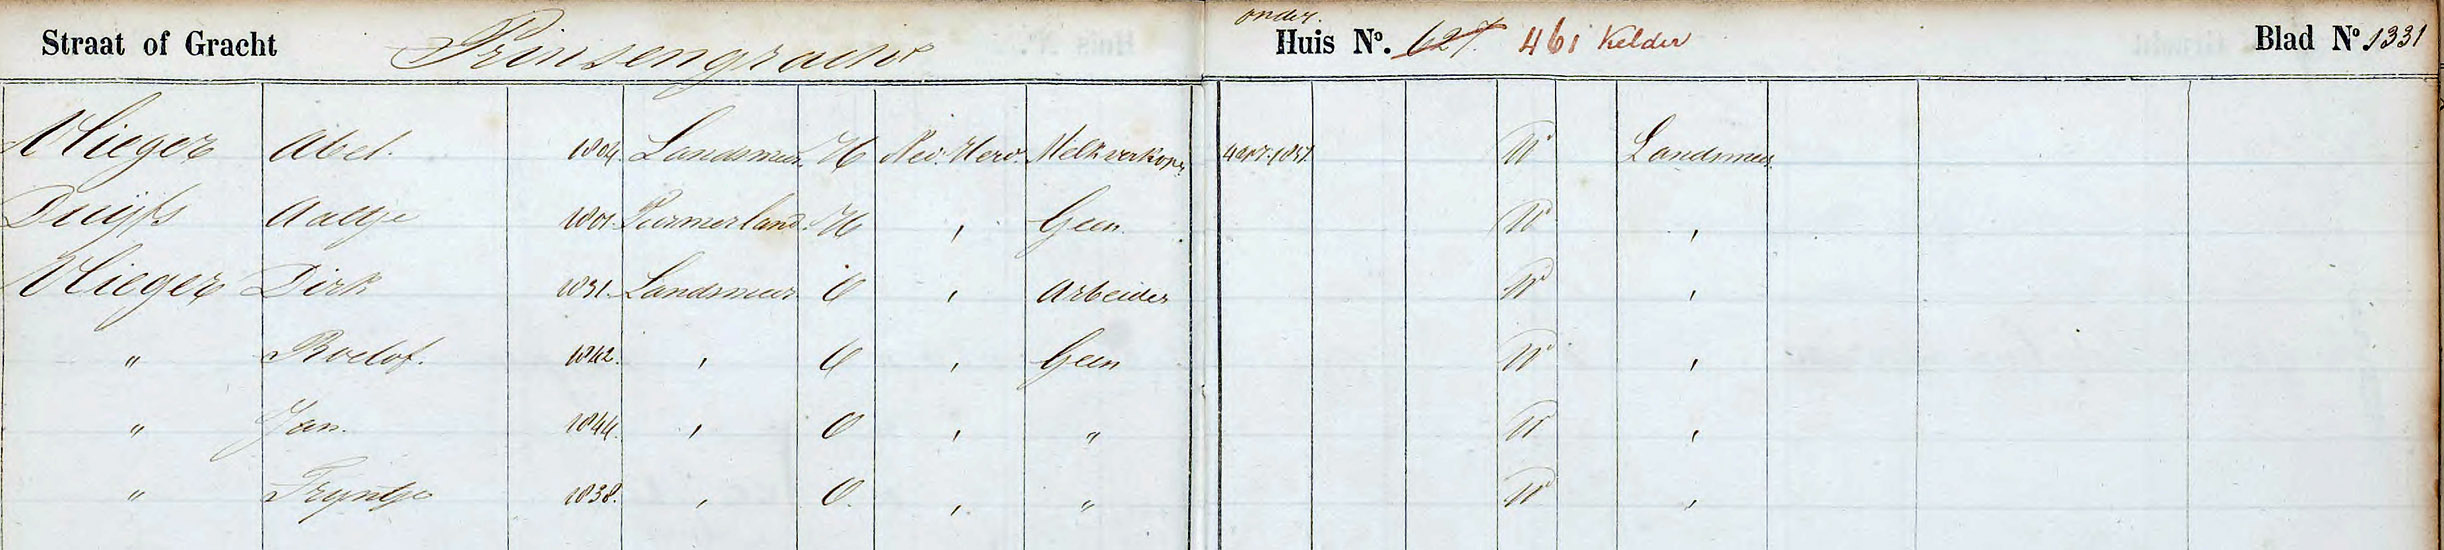 Straat of Gracht Prinsengracht onder. Huis No. 627. 461 Kelder Blad No 1331
Vlieger Abel. 1804. Landsmeer. H Ned. Herv. Melkverkoper W Landsmeer
Duijfs Aaltje 1801. Purmerland. H " Geen. W "
Vlieger Dirk 1831. Landsmeer O " Arbeider W "
" Roelof. 1842. " O " Geen W "
" Jan. 1844. " O " " W "
" Tryntje 1838. " O. " " W "